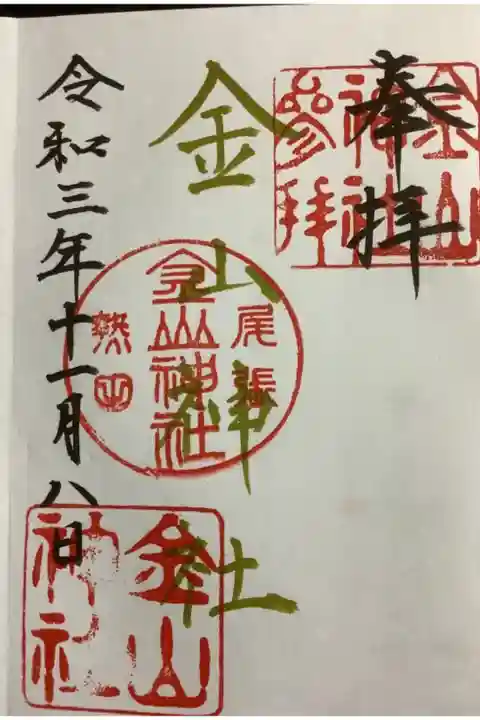 奉拝
金山神社参拝
金山神社
尾張
金山神社
熱田
金山神社
令和三年十一月八日